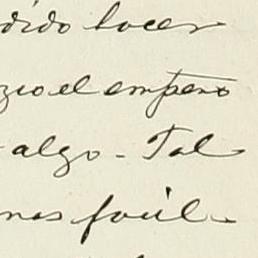 dido hacer
zio el empeño
algo - Tal
nos facil -